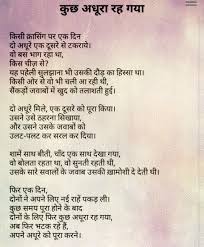 कुछ अधूरा रह गया
किसी क्रासिंग पर एक दिन
दो अधूरे एक दूसरे से टकराये।
वो बस भाग रहा था,
किस चीज़ से?
यह पहेली सुलझाना भी उसकी दौड़ का हिस्सा था।
किसी ओर से वो भी चली आ रही थी,
सैंकड़ों जवाबों में खुद को तलाशती हुई।
दो अधूरे मिले, एक दूसरे को पूरा किया।
उसने उसे ठहरना सिखाया,
और उसने उसके जवाबों को
उलट-पलट कर सरल कर दिया।
शामें साथ बीती, चाँद एक साथ देखा गया,
वो बोलता रहता था, वो सुनती रहती थी,
उसके सारे सवालों के जवाब उसकी ख़ामोशी दे देती थी।
फिर एक दिन,
दोनों ने अपने लिए नई राहें पकड़ ली।
कुछ समय पूरा होने के बाद
दोनों के लिए फिर कुछ अधूरा रह गया,
अब फिर भटक रहे हैं,
अपने अधूरे को पूरा करने।